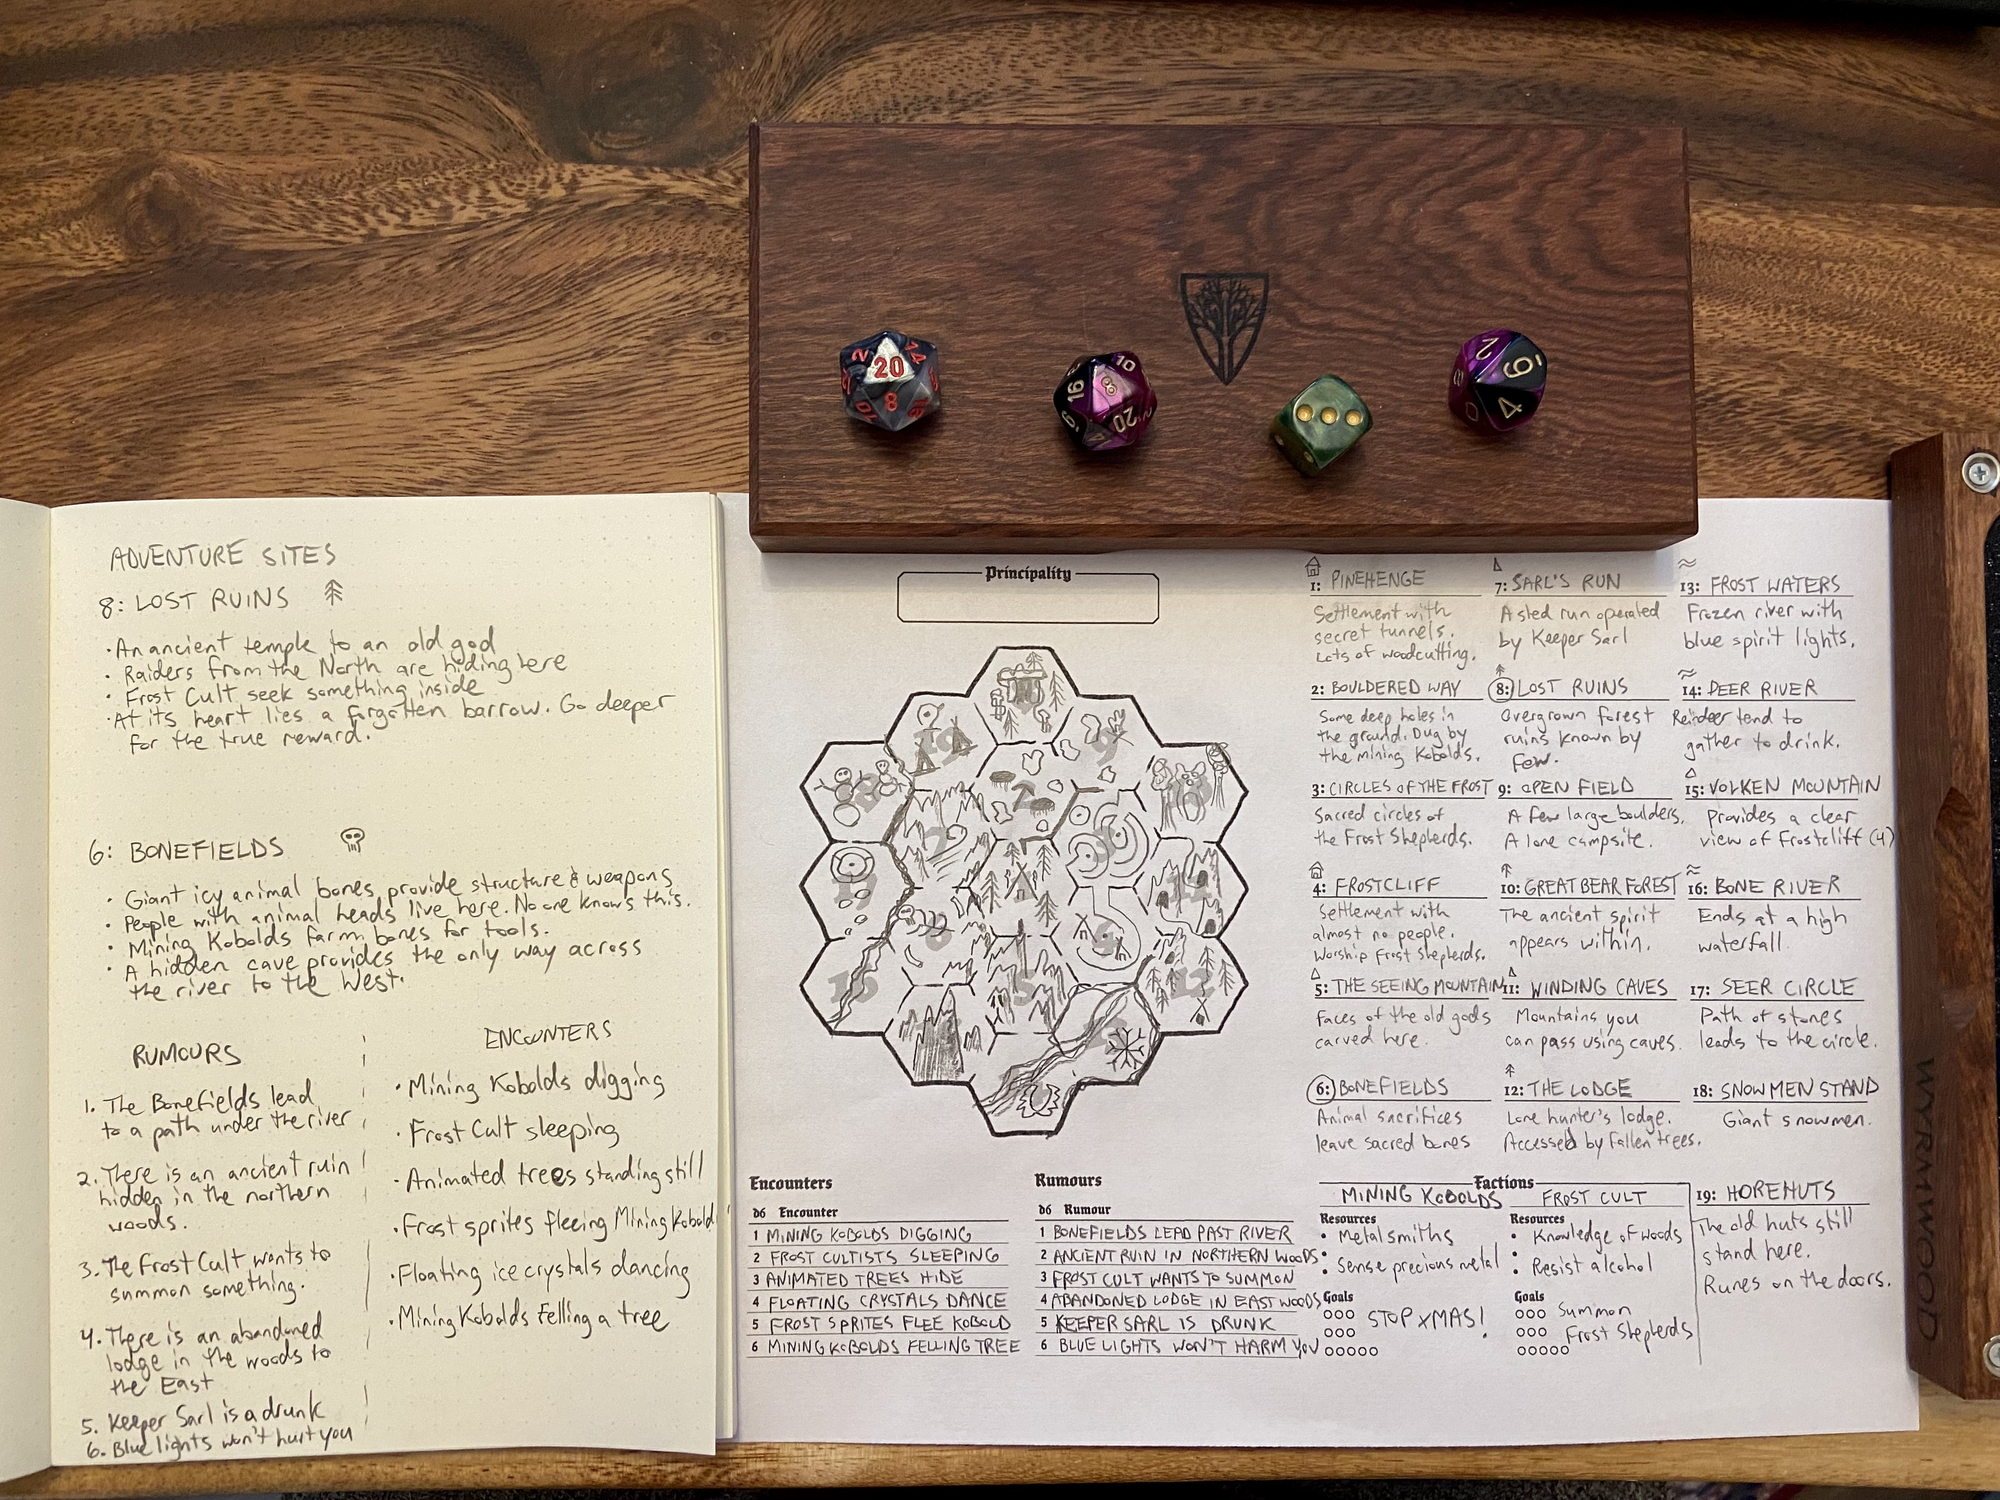 ADVENTURE SITES
8: LOST RUINS
· An ancient temple to an old god
· Raiders from the North are hiding here
· Frost Cult seek something inside
· At its heart lies a forgotten barrow. Go deeper
for the true reward.
6: BONEFIELDS
· Giant icy animal bones provide structure & weapons
· People with animal heads live here. No one knows this.
· Mining Kobolds farm bones for tools.
· A hidden cave provides the only way across
the river to the West.
RUMOURS
1. The Bonefields lead
to a path under the river
2. There is an ancient ruin
hidden in the northern
woods.
3. The Frost Cult wants to
summon something.
4. There is an abandoned
lodge in the woods to
the East
5. Keeper Sarl is a drunk
6. Blue lights won't hurt you
ENCOUNTERS
· Mining Kobolds digging
· Frost Cult sleeping
· Animated trees standing still
· Frost sprites fleeing Mining Kobold
· Floating ice crystals dancing
· Mining Kobolds Felling a tree
20
2
14
8
8
10
16
20
12
9
4
Principality
Encounters
d6 Encounter
1 MINING KOBOLDS DIGGING
2 FROST CULTISTS SLEEPING
3 ANIMATED TREES HIDE
4 FLOATING CRYSTALS DANCE
5 FROST SPRITES FLEE KOBOLD
6 MINING KOBOLDS FELLING TREE
Rumours
d6 Rumour
1 BONEFIELDS LEAD PAST RIVER
2 ANCIENT RUIN IN NORTHERN WOODS
3 FROST CULT WANTS TO SUMMON
4 ABANDONED LODGE IN EAST WOODS
5 KEEPER SARL IS DRUNK
6 BLUE LIGHTS WON'T HARM YOU
1: PINEHENGE
Settlement with
secret tunnels.
Lots of woodcutting.
2: BOULDERED WAY
Some deep holes in
the ground. Dug by
the mining Kobolds.
3: CIRCLES OF THE FROST
Sacred circles of
the Frost Shepherds.
4: FROSTCLIFF
Settlement with
almost no people.
Worship Frost Shepherds.
5: THE SEEING MOUNTAIN
Faces of the old gods
carved here.
6: BONEFIELDS
Animal sacrifices
leave sacred bones
7: SARL'S RUN
A sled run operated
by Keeper Sarl
8: LOST RUINS
Overgrown forest
ruins known by
few.
9: OPEN FIELD
A few large boulders.
A lone campsite.
10: GREAT BEAR FOREST
The ancient spirit
appears within.
11: WINDING CAVES
Mountains you
can pass using caves.
12: THE LODGE
Lone hunter's lodge.
Accessed by fallen trees.
13: FROST WATERS
Frozen river with
blue spirit lights.
14: DEER RIVER
Reindeer tend to
gather to drink.
15: VOLKEN MOUNTAIN
Provides a clear
view of Frostcliff (4)
16: BONE RIVER
Ends at a high
waterfall.
17: SEER CIRCLE
Path of stones
leads to the circle.
18: SNOWMEN STAND
Giant snowmen.
Factions
MINING KOBOLDS
Resources
· Metalsmiths
· Sense precious metal
Goals
STOP XMAS!
FROST CULT
Resources
· Knowledge of woods
· Resist alcohol
Goals
Summon
Frost Shepherds
19: HOREHUTS
The old huts still
stand here.
Runes on the doors.
WYRMWOOD